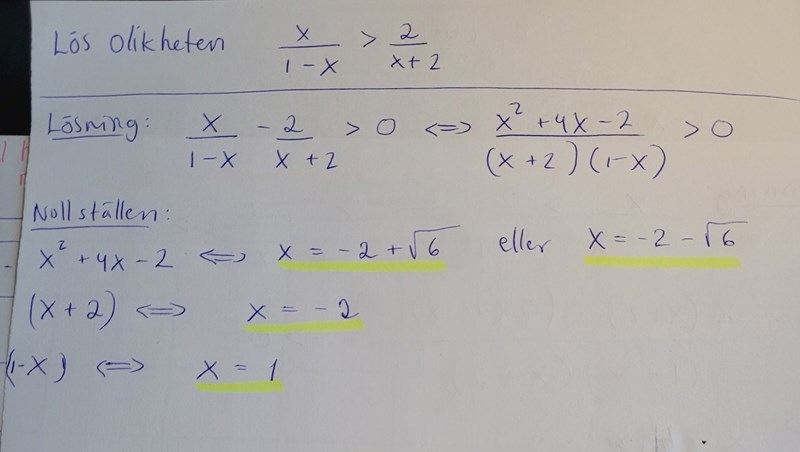 Lös olikheten x/(1-x) > 2/(x+2)
Lösning: x/(1-x) - 2/(x+2) > 0 ⇔ (x²+4x-2)/((x+2)(1-x)) > 0
Nollställen:
x²+4x-2 ⇔ x = -2+√6 eller x = -2-√6
(x+2) ⇔ x = -2
(1-x) ⇔ x = 1